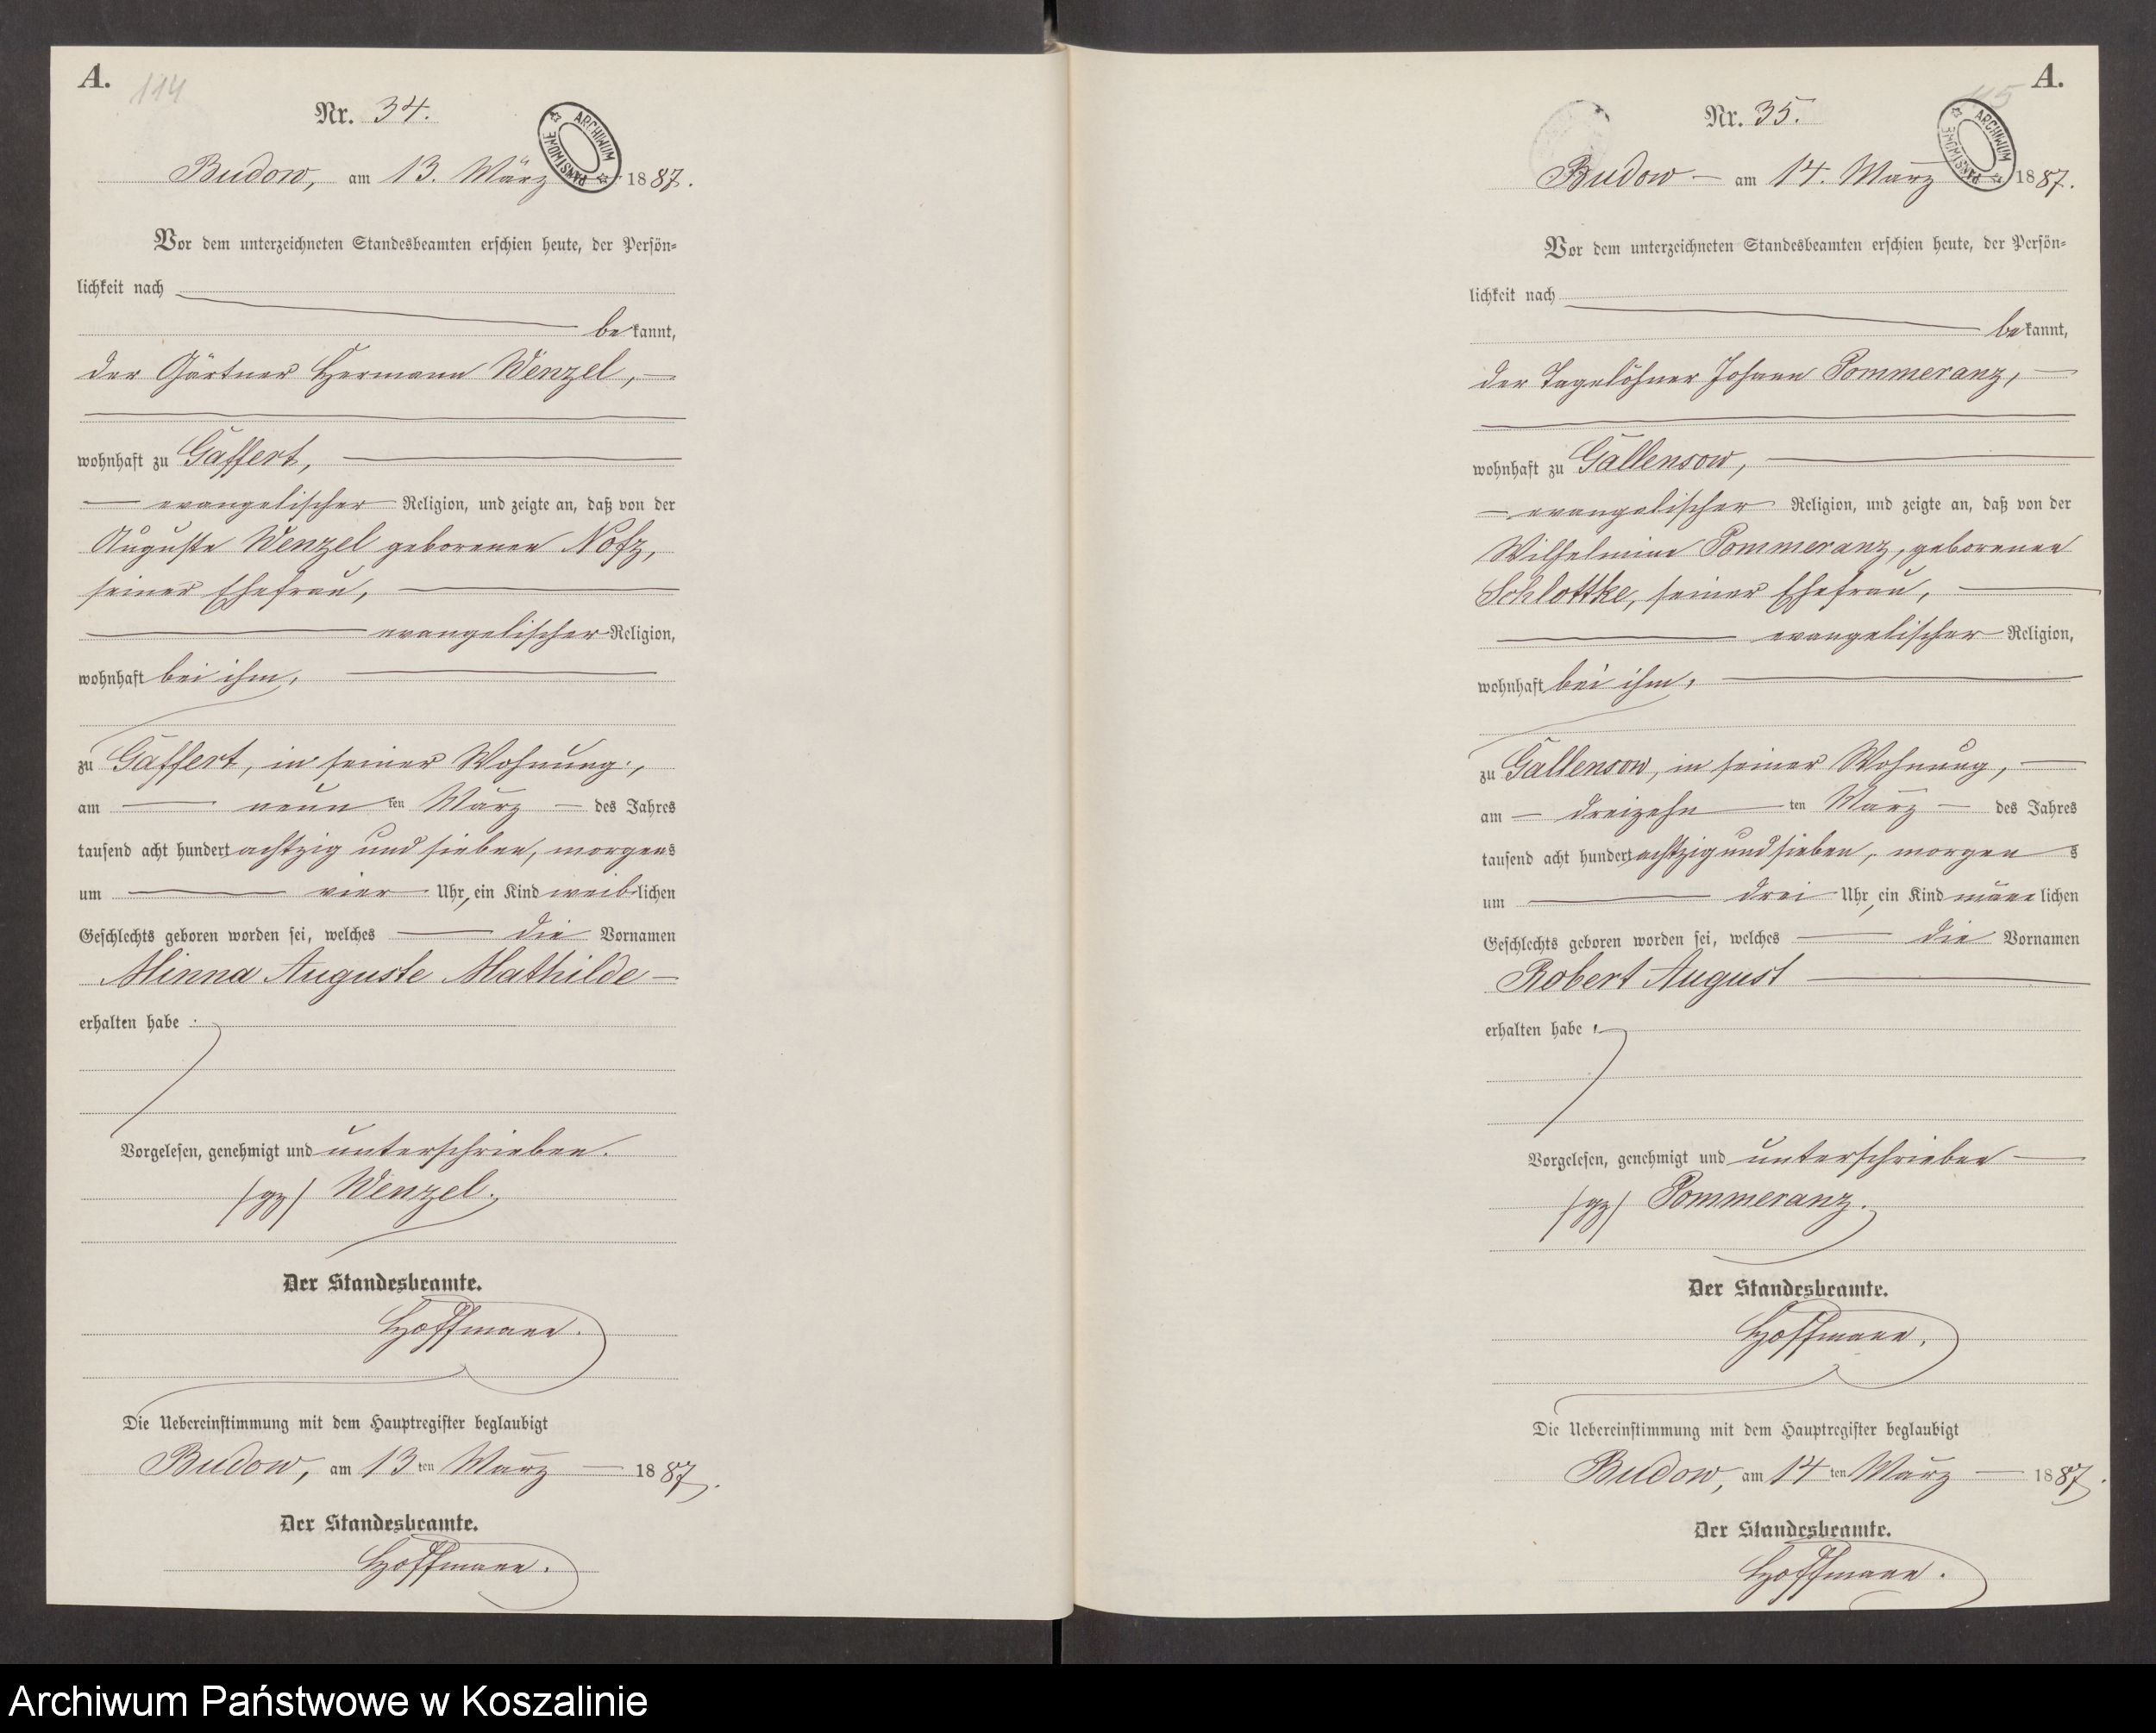 A.
114
Nr. 34.
ARCHIWUM PAŃSTWOWE
Budow, am 13. März 1887.
Vor dem unterzeichneten Standesbeamten erschien heute, der Persön-
lichkeit nach
bekannt,
der Gärtner Hermann Wenzel,
wohnhaft zu Gaffert,
evangelischer Religion, und zeigte an, daß von der
Auguste Wenzel geborenen Notz,
seiner Ehefrau,
evangelischer Religion,
wohnhaft bei ihm,
zu Gaffert, in seiner Wohnung,
am neunten März des Jahres
tausend acht hundert achtzig und sieben, morgens
um vier Uhr, ein Kind weiblichen
Geschlechts geboren worden sei, welches die Vornamen
Minna Auguste Mathilde
erhalten habe.
Vorgelesen, genehmigt und unterschrieben.
(gz) Wenzel.
Der Standesbeamte.
Hoffmann.
Die Uebereinstimmung mit dem Hauptregister beglaubigt
Budow, am 13ten März 1887.
Der Standesbeamte.
Hoffmann.
A.
115
Nr. 35.
ARCHIWUM PAŃSTWOWE
Budow am 14. März 1887.
Vor dem unterzeichneten Standesbeamten erschien heute, der Persön-
lichkeit nach
bekannt,
der Tagelöhner Johann Pommeranz,
wohnhaft zu Gallensow,
evangelischer Religion, und zeigte an, daß von der
Wilhelmine Pommeranz, geborenen
Schlottke, seiner Ehefrau,
evangelischer Religion,
wohnhaft bei ihm,
zu Gallensow, in seiner Wohnung,
am dreizehnten März des Jahres
tausend acht hundert achtzig und sieben, morgens
um drei Uhr, ein Kind männlichen
Geschlechts geboren worden sei, welches die Vornamen
Robert August
erhalten habe.
Vorgelesen, genehmigt und unterschrieben
(gz) Pommeranz.
Der Standesbeamte.
Hoffmann.
Die Uebereinstimmung mit dem Hauptregister beglaubigt
Budow, am 14ten März 1887.
Der Standesbeamte.
Hoffmann.
Archiwum Państwowe w Koszalinie